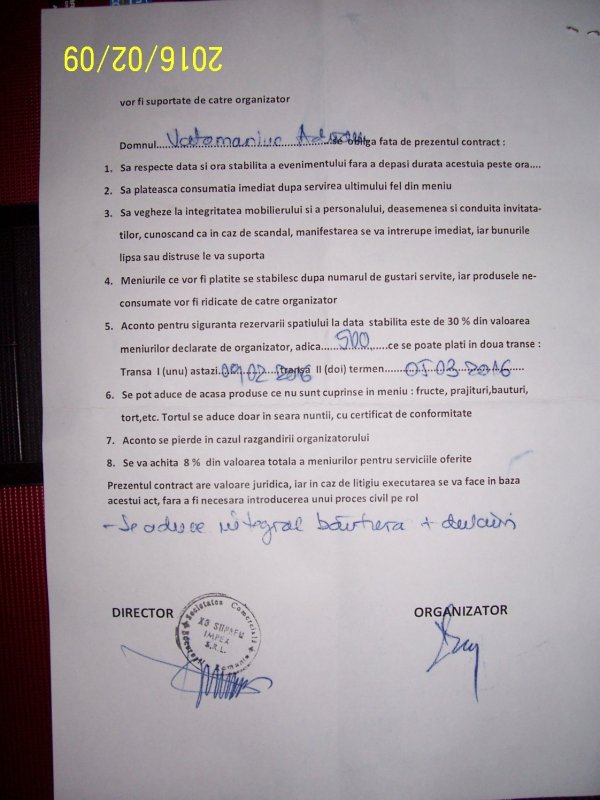 2016/02/09
vor fi suportate de catre organizator
Domnul....Vatamaniuc.......se obliga fata de prezentul contract :
1. Sa respecte data si ora stabilita a evenimentului fara a depasi durata acestuia peste ora....
2. Sa plateasca consumatia imediat dupa servirea ultimului fel din meniu
3. Sa vegheze la integritatea mobilierului si a personalului, deasemenea si conduita invitata-
tilor, cunoscand ca in caz de scandal, manifestarea se va intrerupe imediat, iar bunurile
lipsa sau distruse le va suporta
4. Meniurile ce vor fi platite se stabilesc dupa numarul de gustari servite, iar produsele ne-
consumate vor fi ridicate de catre organizator
5. Aconto pentru siguranta rezervarii spatiului la data stabilita este de 30 % din valoarea
meniurilor declarate de organizator, adica......500......ce se poate plati in doua transe :
Transa I (unu) astazi.09.02.2016.....transa II (doi) termen.....05.03.2016........
6. Se pot aduce de acasa produse ce nu sunt cuprinse in meniu : fructe, prajituri,bauturi,
tort,etc. Tortul se aduce doar in seara nuntii, cu certificat de conformitate
7. Aconto se pierde in cazul razgandirii organizatorului
8. Se va achita 8 % din valoarea totala a meniurilor pentru serviciile oferite
Prezentul contract are valoare juridica, iar in caz de litigiu executarea se va face in baza
acestui act, fara a fi necesara introducerea unui proces civil pe rol
- Se aduce integral bautura + dulciuri
DIRECTOR
Societatea Comerciala
IMPEX
S.R.L.
Bucuresti Romania
ORGANIZATOR